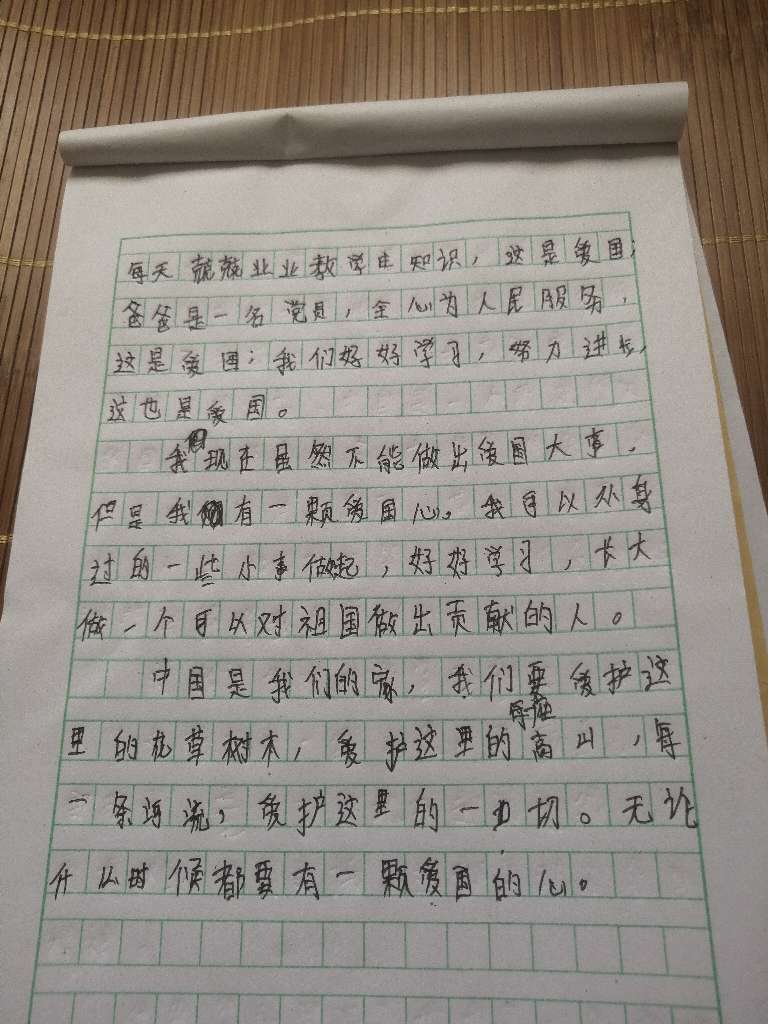 每天兢兢业业教学生知识，这是爱国；
爸爸是一名党员，全心为人民服务，
这是爱国；我们好好学习，努力进长，
这也是爱国。
我现在虽然不能做出爱国大事，
但是我有一颗爱国心。我可以从身
过的一些小事做起，好好学习，长大
做一个可以对祖国做出贡献的人。
中国是我们的家，我们要爱护这
每座
里的花草树木，爱护这里的高山，每
一条河流，爱护这里的一切。无论
什么时候都要有一颗爱国的心。